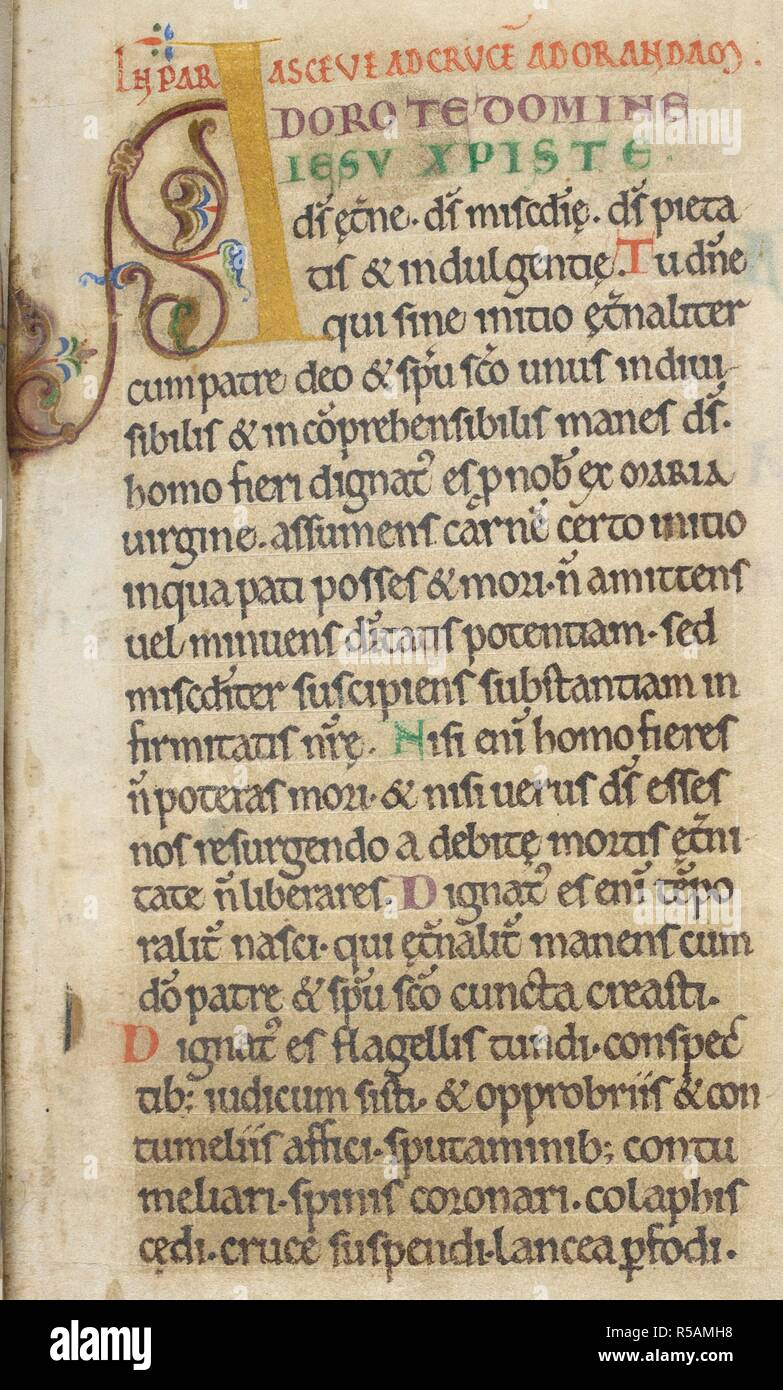 IN PARASCEVE AD CRUCĒ ADORANDAM.
ADORO TE DOMINE
IESU XPISTE.
dſ ęt̄ne. dſ miſcd̄ię. dſ pieta
tiſ & indulgentię. Tu dn̄e
qui ſine initio ęt̄naliter
cum patre deo & ſpū ſc̄o unuſ indiui-
ſibiliſ & incōprehenſibiliſ maneſ dſ̄.
homo fieri dignatꝰ eſ p̱ nob̄ ex MARIA
uirgine. aſſumenſ carnē certo initio
in qua pati poſſeſ & mori. n̄ amittenſ
uel minuenſ d̄itatiſ potentiam. ſed
miſcd̄iter ſuſcipienſ ſubſtantiam in
firmitatiſ nr̄ę. Niſi enī homo fiereſ
n̄ poteraſ mori. & niſi ueruſ dſ̄ eſſeſ
noſ reſurgendo a debitę mortiſ ęt̄ni-
tate n̄ liberareſ. Dignatꝰ eſ enī tēpo
ralit̄ naſci. qui ęt̄nalit̄ manenſ cum
dō patre & ſpū ſc̄o cuncta creaſti.
Dignatꝰ eſ flagelliſ tundi. conſpec̄
tib; iudicum ſiſti. & opprobriiſ & con
tumeliiſ affici. ſputaminib; contu
meliari. ſpiniſ coronari. colaphiſ
cędi. cruce ſuſpendi. lancea ꝑfodi.
alamy
Image ID: R5AMH8
www.alamy.com